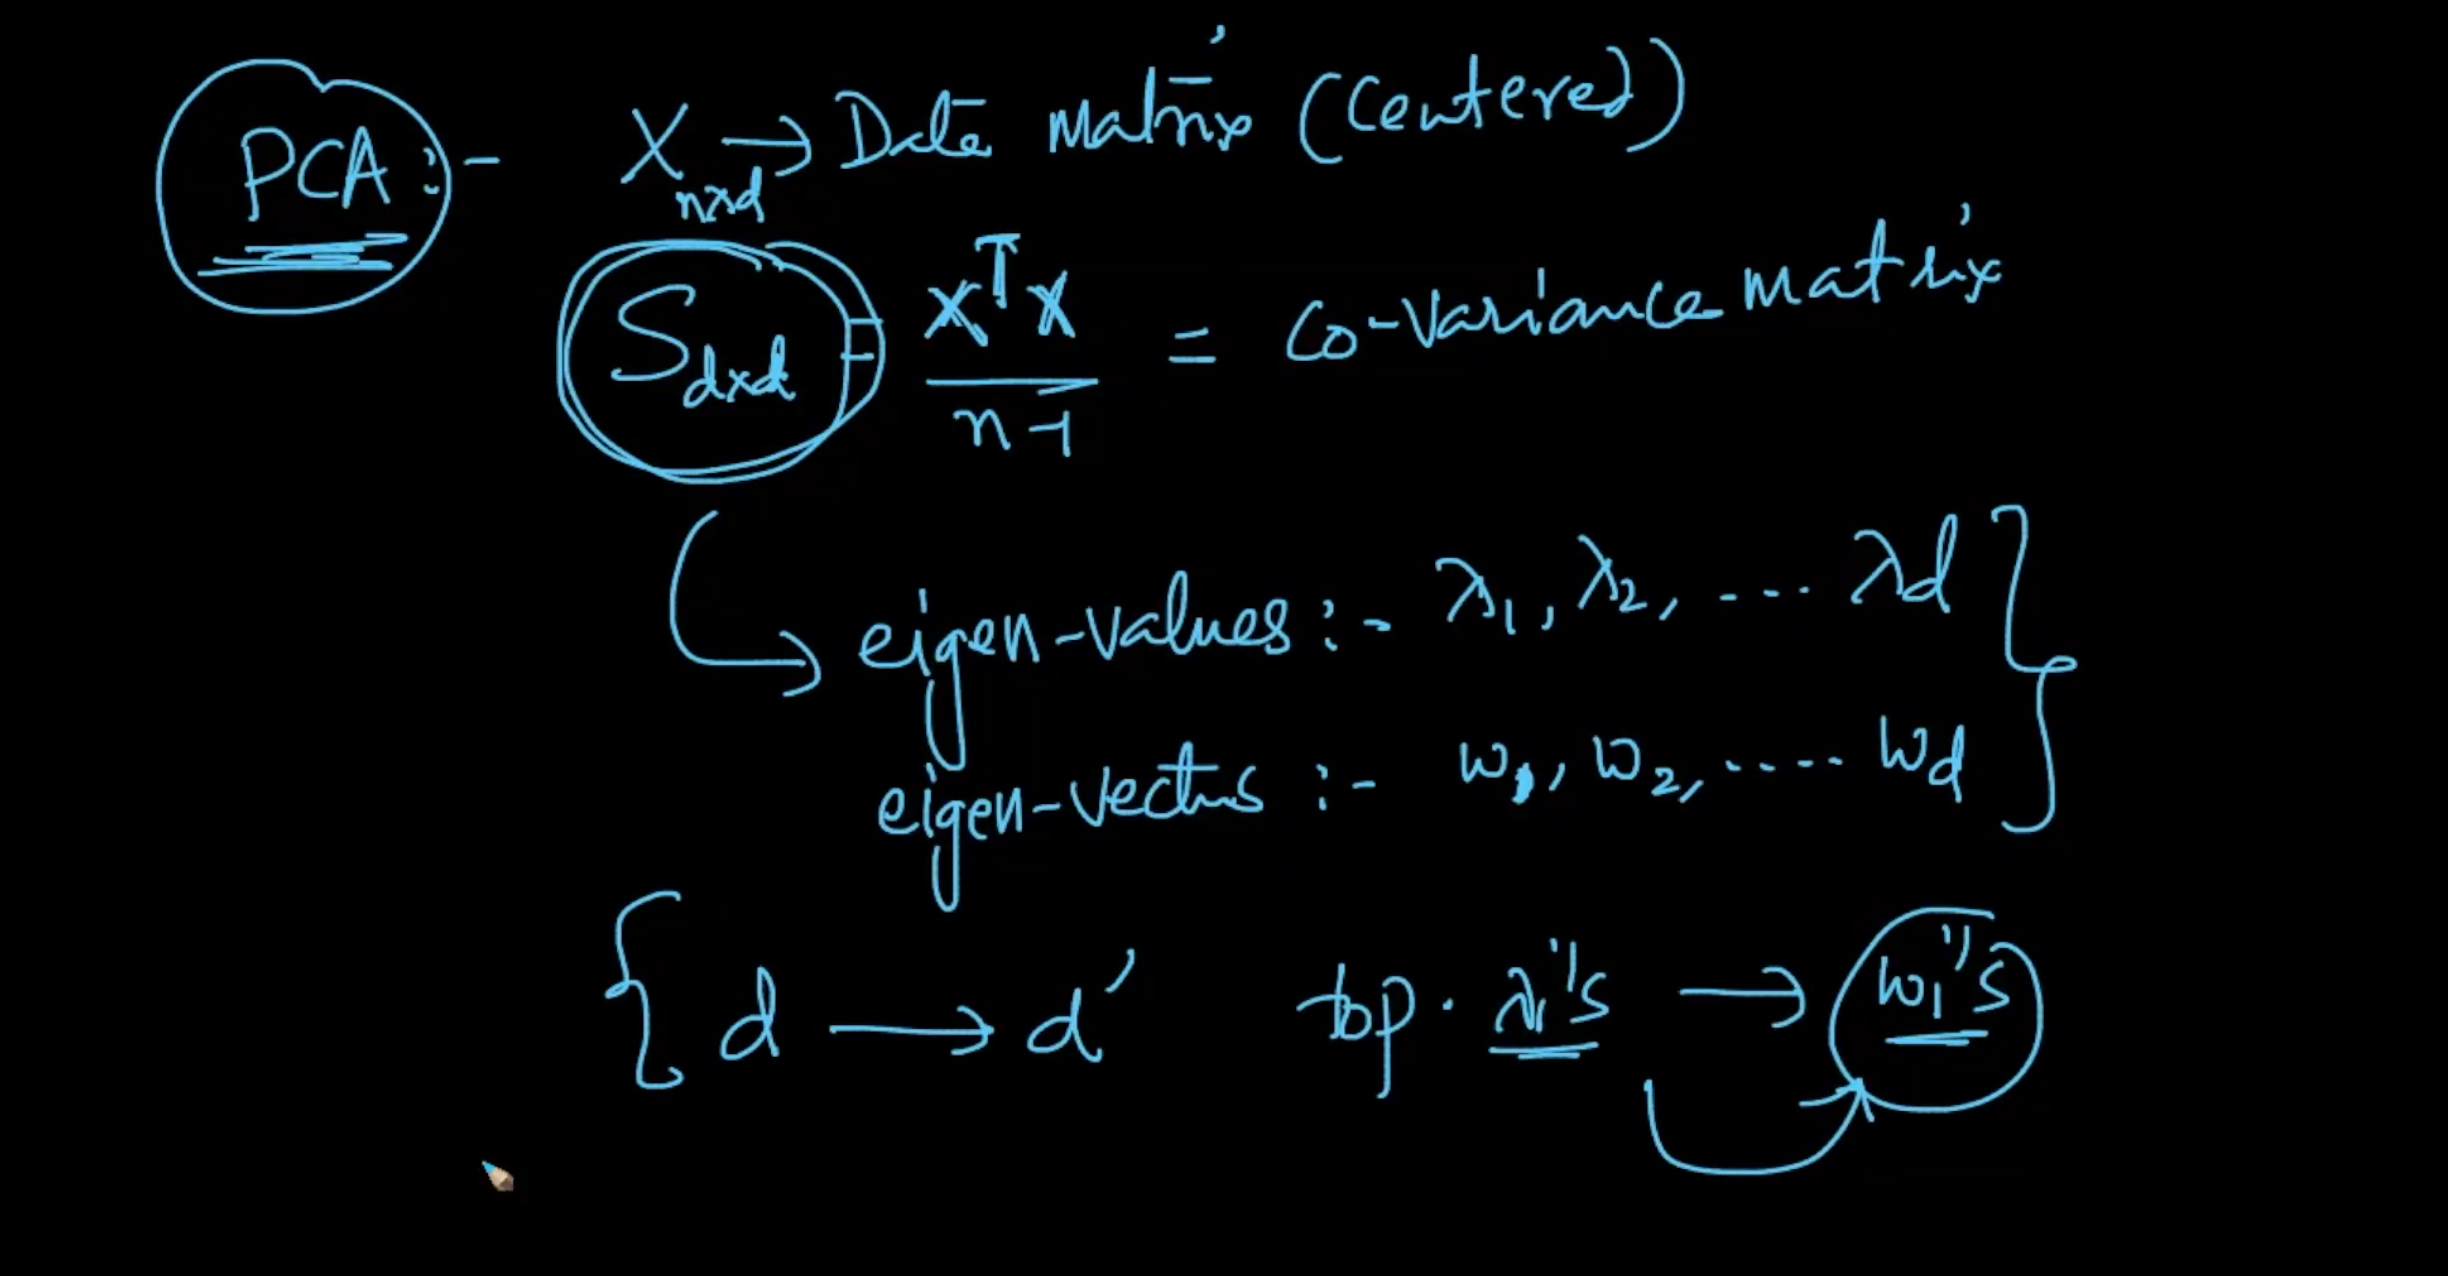 PCA :- X n×d → Data Matrix (Centered)
S d×d = XᵀX / n-1 = Co-variance Matrix
eigen-values :- λ1, λ2, .... λd
eigen-vectors :- w1, w2, ..... wd
d → d' top λi's → wi's